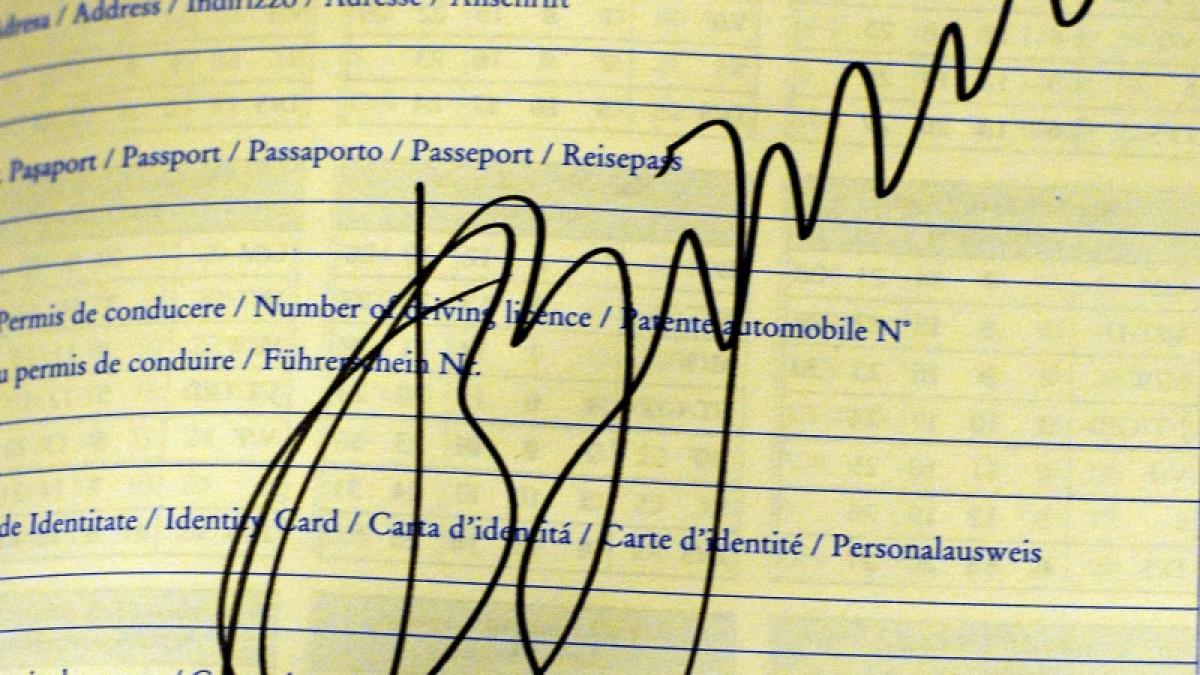 Adresa / Address / Indirizzo / Adresse / Anschrift
Paşaport / Passport / Passaporto / Passeport / Reisepass
Permis de conducere / Number of driving licence / Patente automobile N°
u permis de conduire / Führerschein Nr.
de Identitate / Identity Card / Carta d'identitá / Carte d'identité / Personalausweis